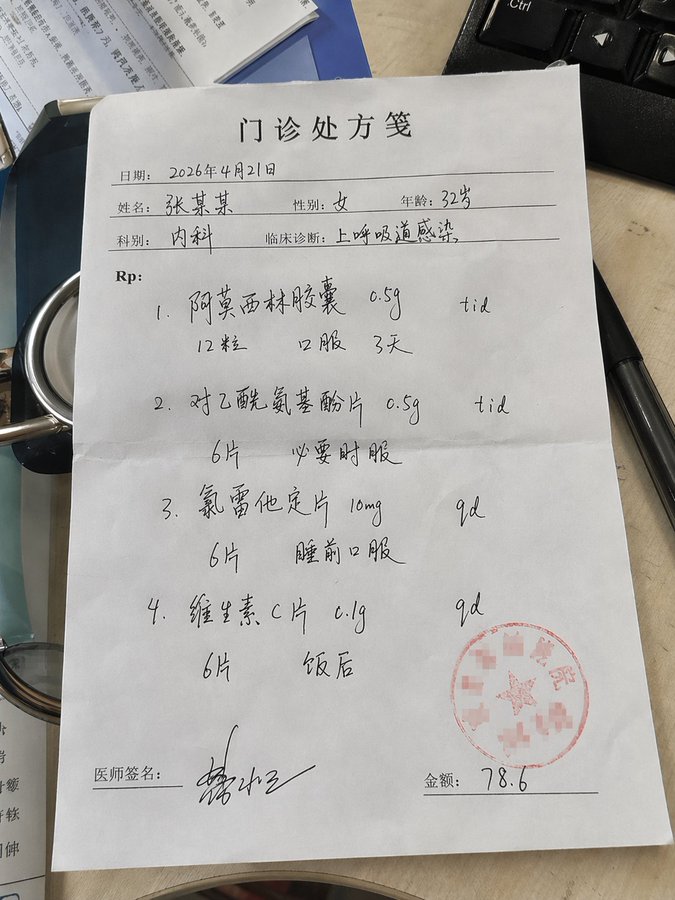 Ctrl
门诊处方笺
日期: 2026年4月21日
姓名: 张某某 性别: 女 年龄: 32岁
科别: 内科 临床诊断: 上呼吸道感染
Rp:
1. 阿莫西林胶囊 0.5g tid
12粒 口服 3天
2. 对乙酰氨基酚片 0.5g tid
6片 必要时服
3. 氯雷他定片 10mg qd
6片 睡前口服
4. 维生素C片 0.1g qd
6片 饭后
院
医师签名:
金额: 78.6